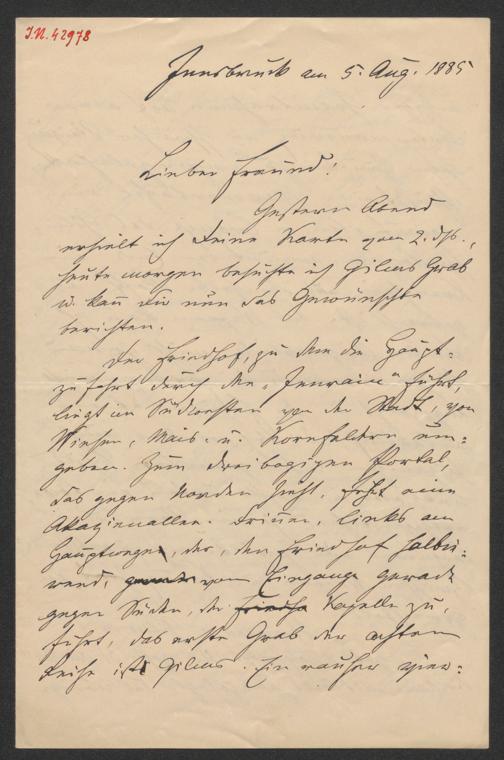 I.N. 42978
Innsbruck am 5. Aug. 1885
Lieber Freund!
Gestern Abend
erhielt ich Deine Karte vom 2. ds.,
heute morgen besuchte ich Gilms Grab
u. kann Dir nun das Gewünschte
berichten.
Der Friedhof, zu dem die Haupt-
zufahrt durch den führt,
liegt im Südwesten von der Stadt, von
Wiesen, Mais- u. Kornfeldern um-
geben. Zum dreibogigen Portal,
das gegen Norden steht, führt eine
Akazienallee. Drinnen, links am
Hauptwege, der, den Friedhof halbi-
rend, vom Eingange gerade
gegen Süden, der Kapelle zu,
führt, das erste Grab der achten
Reihe ist Gilms. Ein rauher vier-